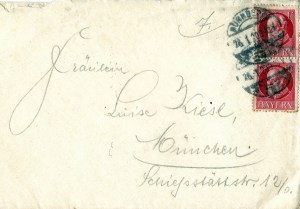 NÜRNBERG
BAYERN
BAYERN
Fräulein
Luise Kiesl,
München
Schießstättstr. 12/0.